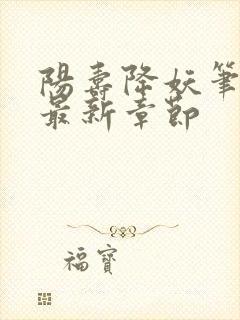 陽壽降妖筆
最新章節
福寶